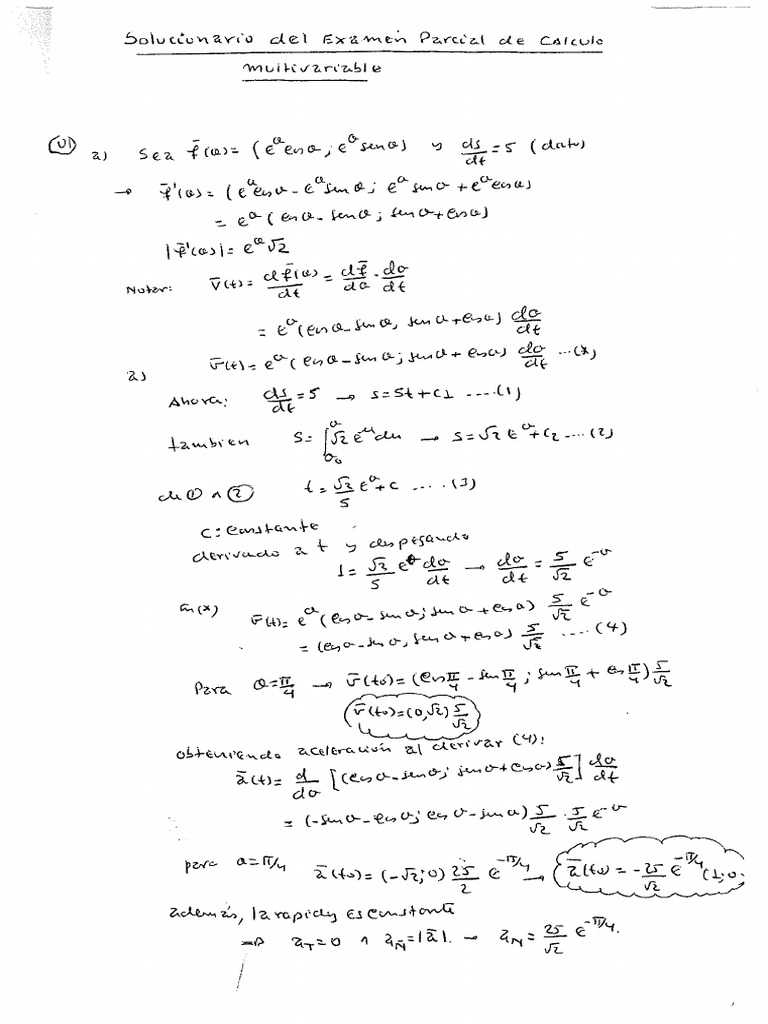 Solucionario del Examen Parcial de Calculo
Multivariable
01 a) Sea f̄(θ)= (e^θ cosθ; e^θ senθ) y ds/dt = 5 (dato)
→ f̄'(θ)= (e^θ cosθ - e^θ senθ; e^θ senθ + e^θ cosθ)
= e^θ (cosθ - senθ; senθ + cosθ)
|f̄'(θ)| = e^θ √2
Notar: v̄(t)= df̄(θ)/dt = df̄/dθ · dθ/dt
= e^θ (cosθ - senθ, senθ + cosθ) dθ/dt
v̄(t)= e^θ (cosθ - senθ; senθ + cosθ) dθ/dt ...(*)
a)
Ahora: ds/dt = 5 → s = 5t + c1 ....(1)
tambien s = ∫_{θ0}^{θ} √2 e^u du → s = √2 e^θ + c2 ....(2)
de ① ∧ ② t = √2/5 e^θ + c ....(3)
c: constante
derivando a t y despejando
1 = √2/5 e^θ dθ/dt → dθ/dt = 5/√2 e^-θ
En (*) v̄(t)= e^θ (cosθ - senθ; senθ + cosθ) 5/√2 e^-θ
= (cosθ - senθ, senθ + cosθ) 5/√2 ....(4)
Para θ = π/4 → v̄(t0)= (cos π/4 - sen π/4; sen π/4 + cos π/4) 5/√2
v̄(t0)= (0, √2) 5/√2
obteniendo aceleración al derivar (4):
ā(t)= d/dθ [(cosθ - senθ; senθ + cosθ) 5/√2] dθ/dt
= (-senθ - cosθ; cosθ - senθ) 5/√2 · 5/√2 e^-θ
para θ = π/4 ā(t0)= (-√2; 0) 25/2 e^-π/4 → ā(t0) = -25/√2 e^-π/4 (1; 0
además, la rapidez es constante
⇒ aT = 0 ∧ aN = |ā|. → aN = 25/√2 e^-π/4.